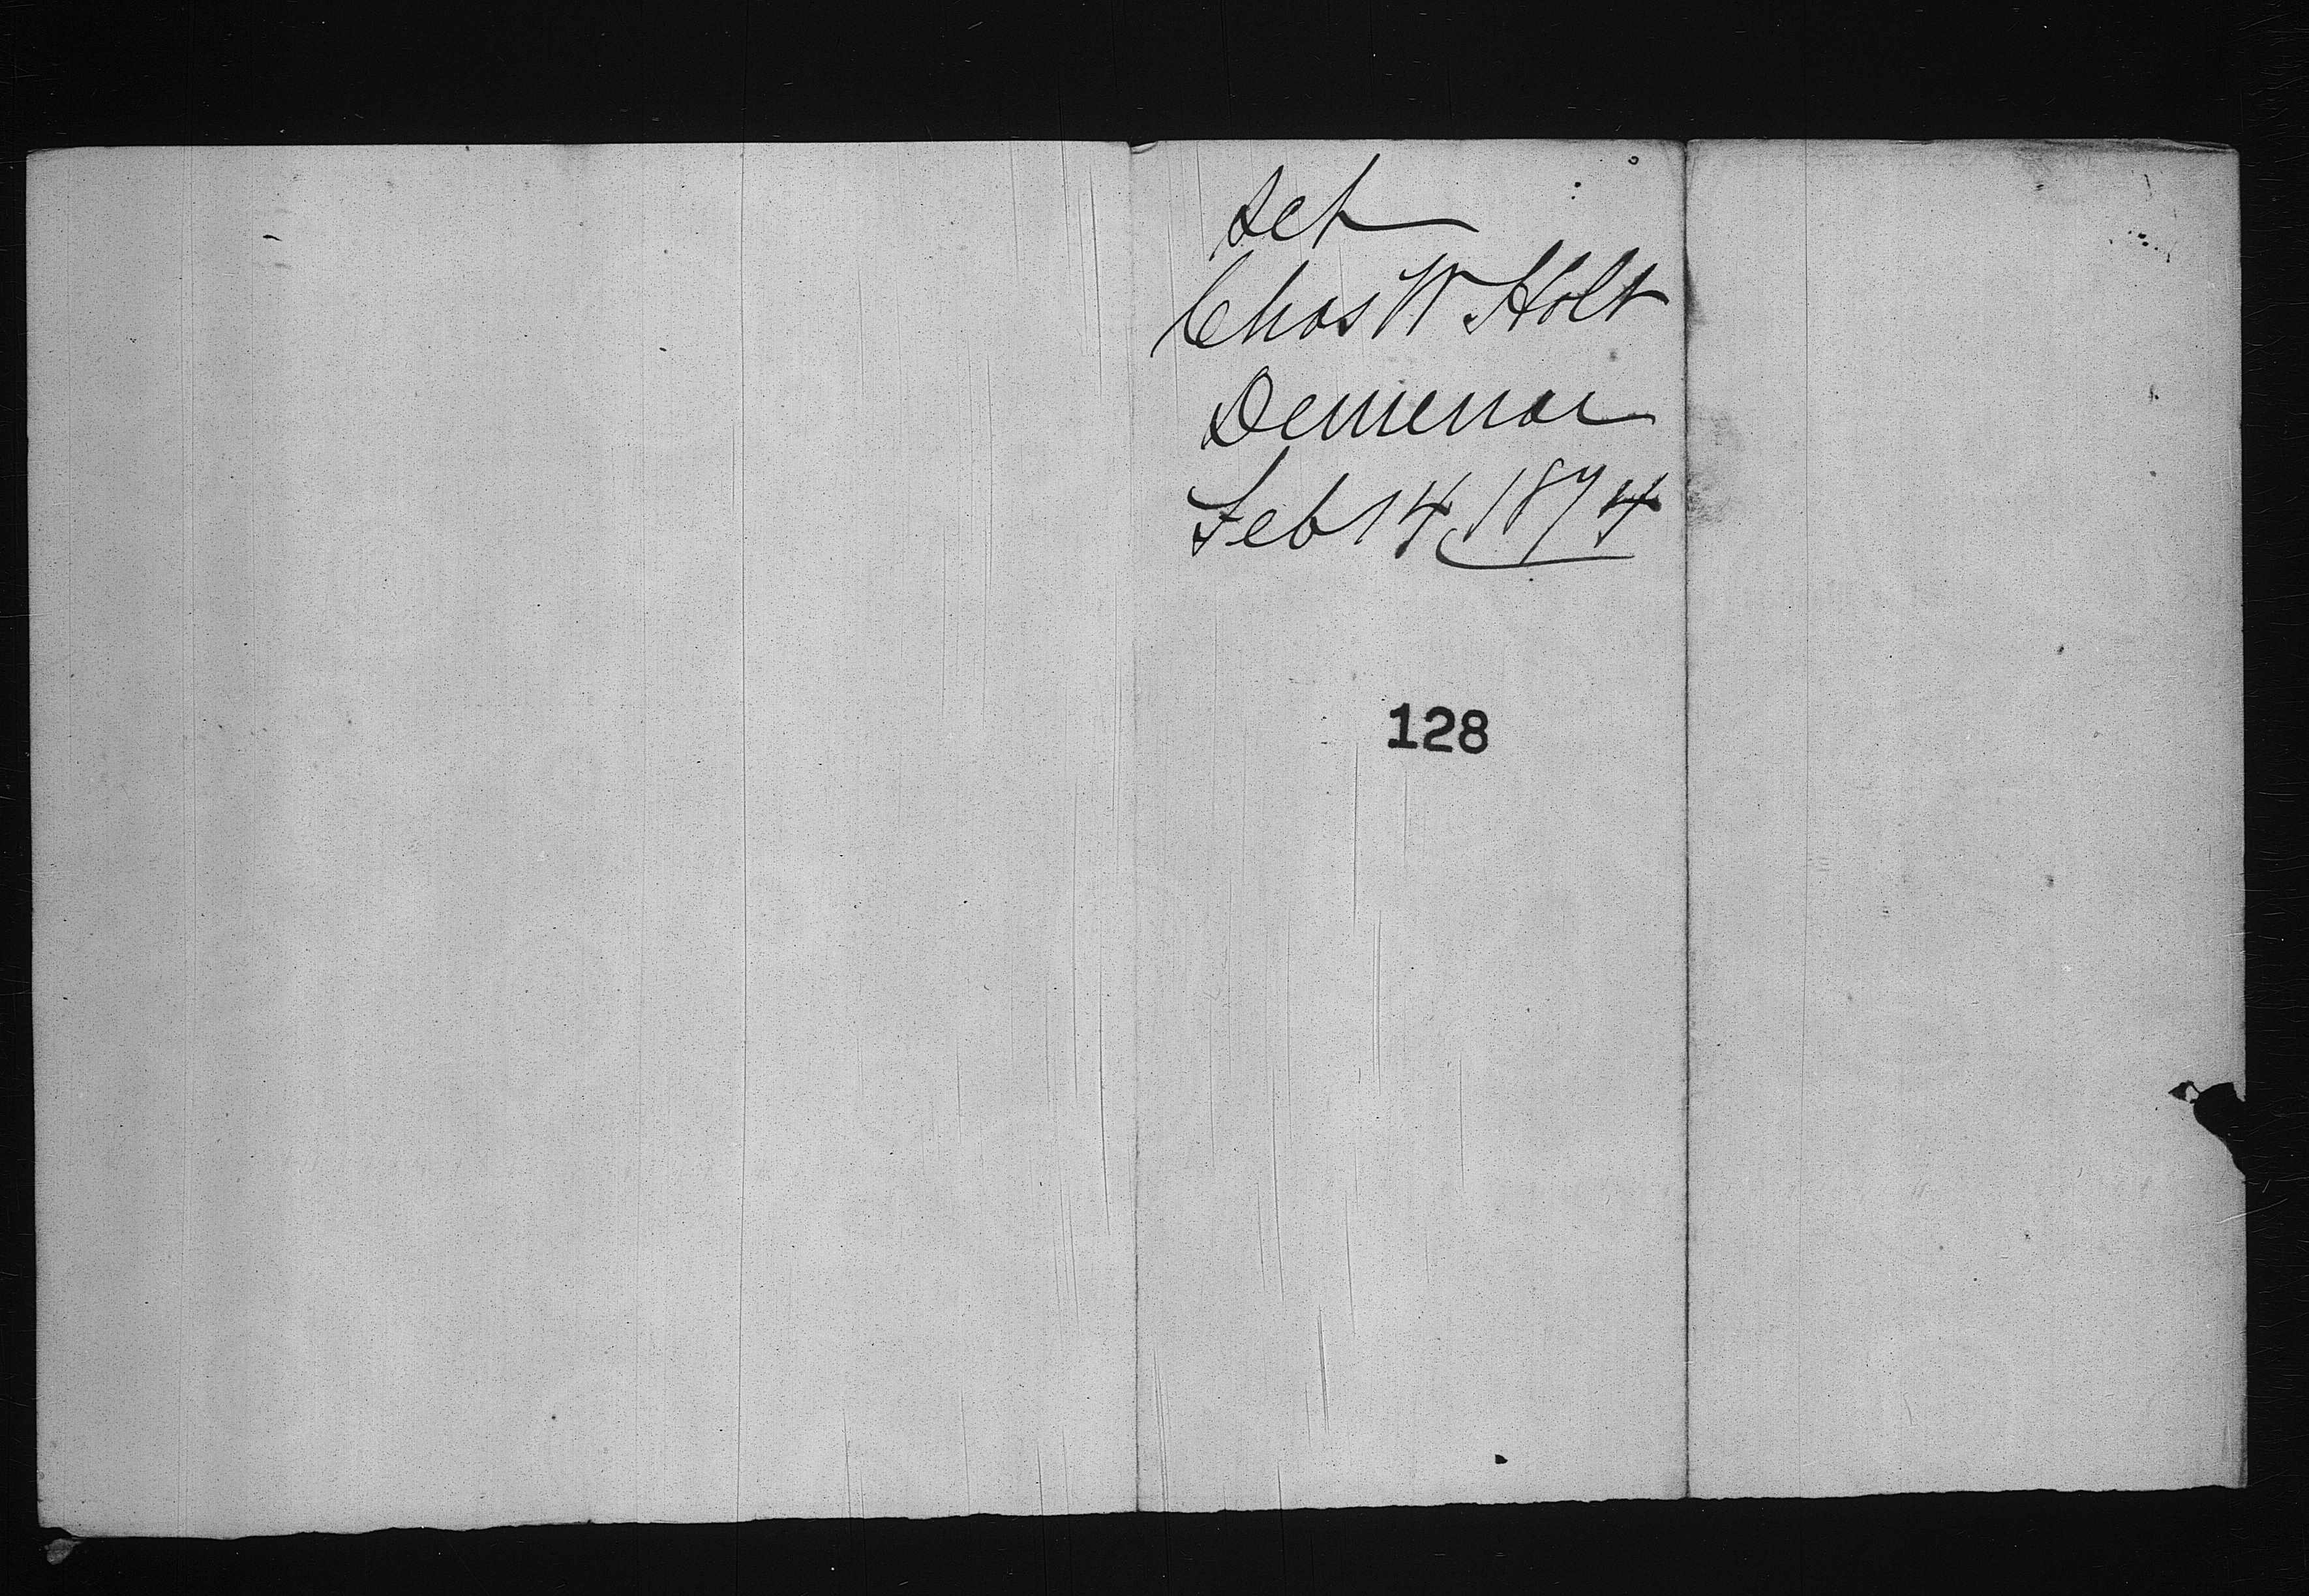 Let
Chas W Holt
Demenar
Feb 14, 1874
128